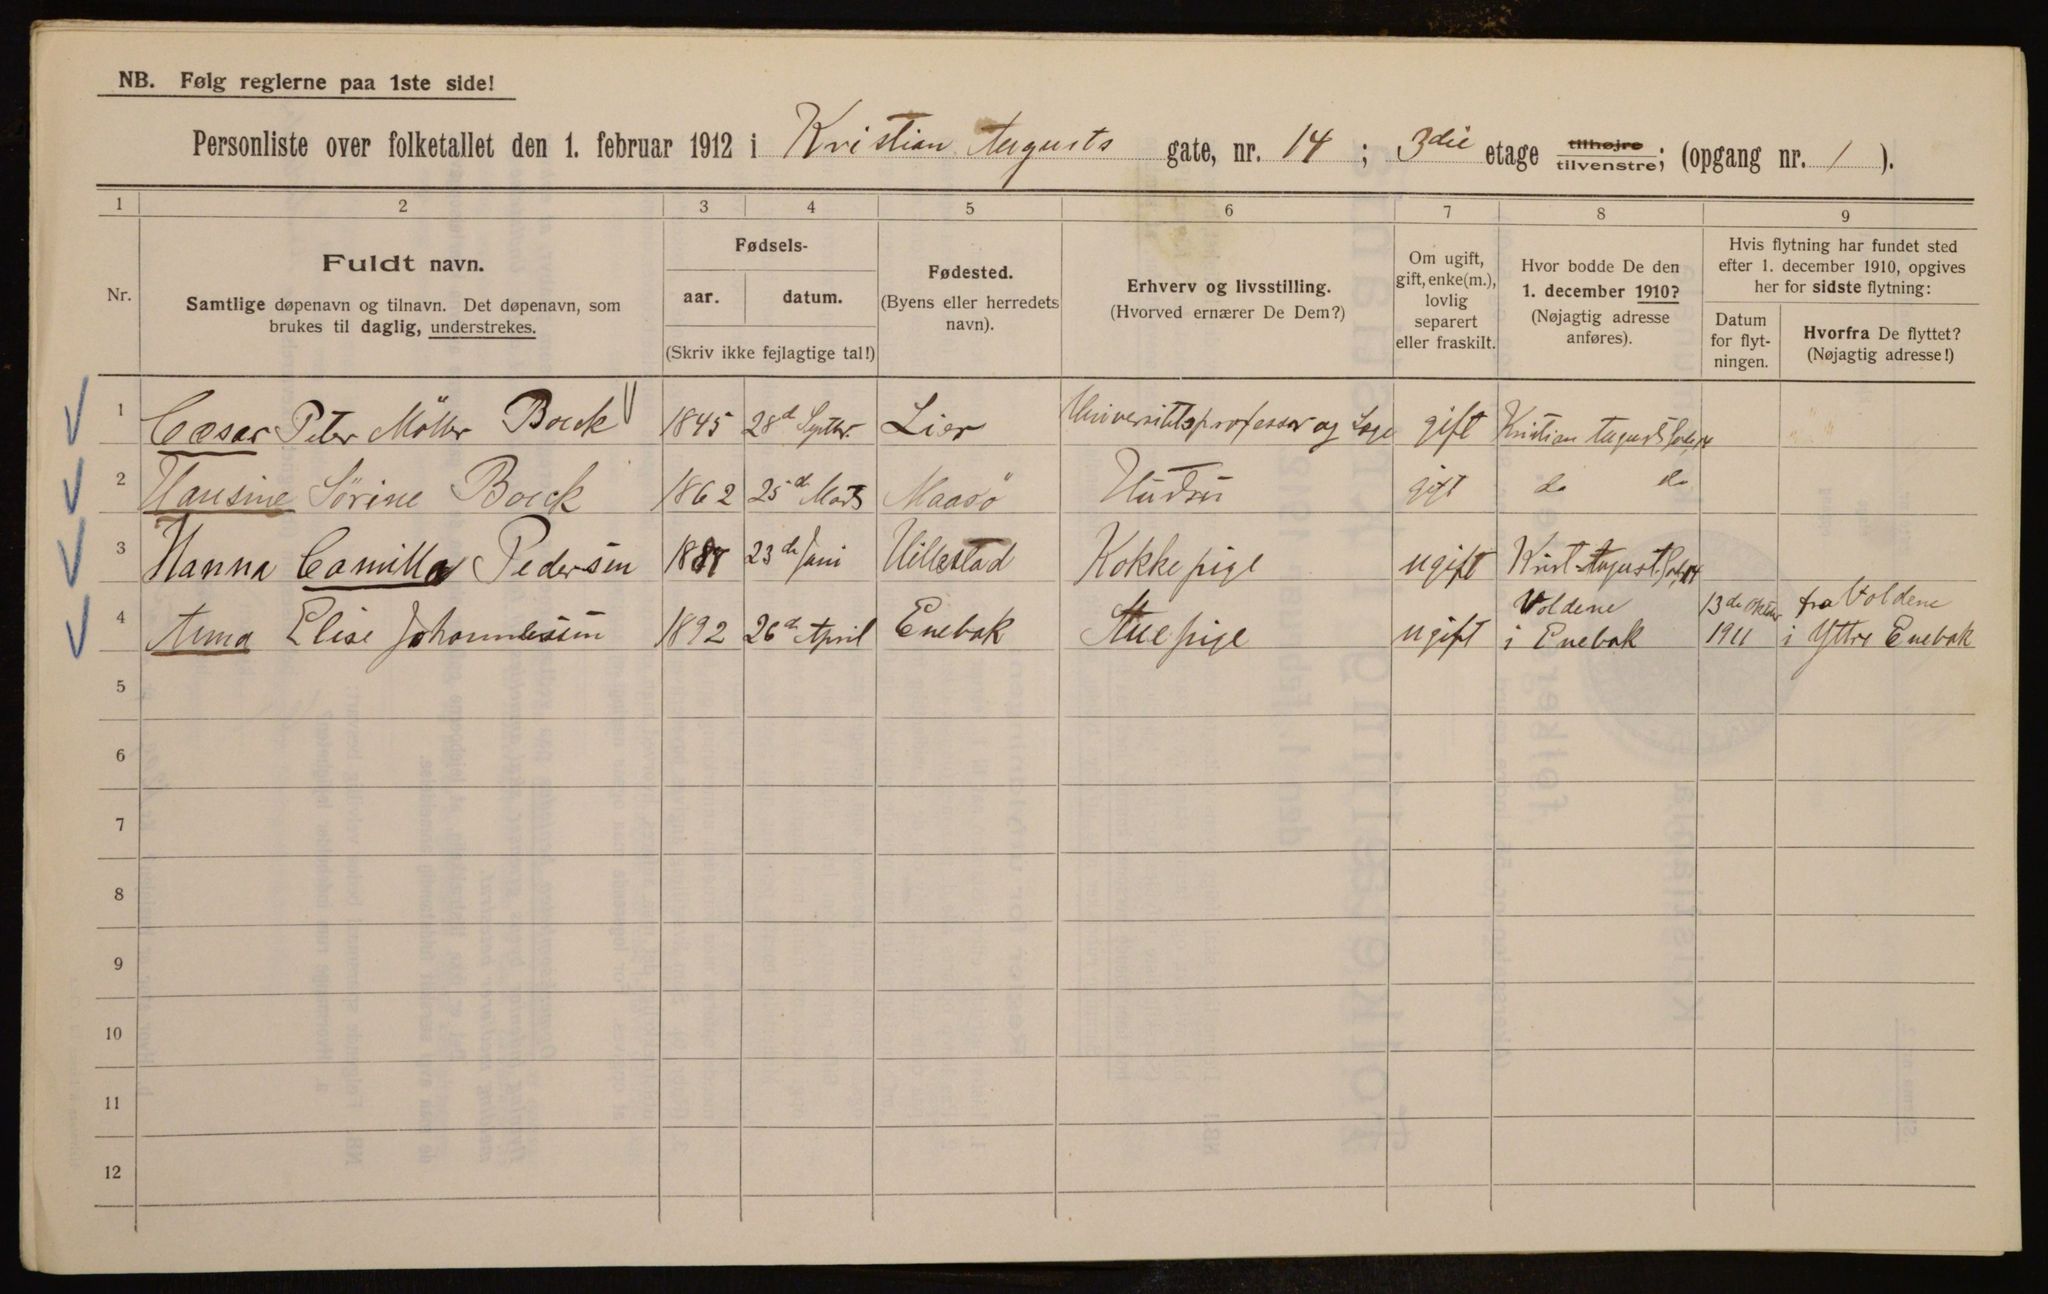 NB. Følg reglerne paa 1ste side!
Personliste over folketallet den 1. februar 1912 i Kristian Augusts gate, nr. 14 ; 3die etage tilhøjre tilvenstre; (opgang nr. 1 ).
1 2 3 4 5 6 7 8 9
Nr.
Fuldt navn.
Samtlige døpenavn og tilnavn. Det døpenavn, som
brukes til daglig, understrekes.
Fødsels-
aar. datum.
(Skriv ikke fejlagtige tal!)
Fødested.
(Byens eller herredets
navn).
Erhverv og livsstilling.
(Hvorved ernærer De Dem?)
Om ugift,
gift, enke(m.),
lovlig
separert
eller fraskilt.
Hvor bodde De den
1. december 1910?
(Nøjagtig adresse
anføres).
Hvis flytning har fundet sted
efter 1. december 1910, opgives
her for sidste flytning:
Datum
for flyt-
ningen.
Hvorfra De flyttet?
(Nøjagtig adresse!)
1 Cæsar Peter Möller Boeck 1845 28d Septbr. Lier Universitetsprofessor og Læge gift Kristian Augusts Gade 14
2 Hansine Sörine Boeck 1862 25d Marts Maasö Hustru gift do do
3 Hanna Camilla Pedersen 23de Juni Hillestad Kokkepige ugift Krist. August. Gade 14
4 Anna Elise Johannessen 1892 26d April Enebak Stuepige ugift Voldene i Enebak 13de Oktbr 1911 fra Voldene i Yttre Enebak
5
6
7
8
9
10
11
12